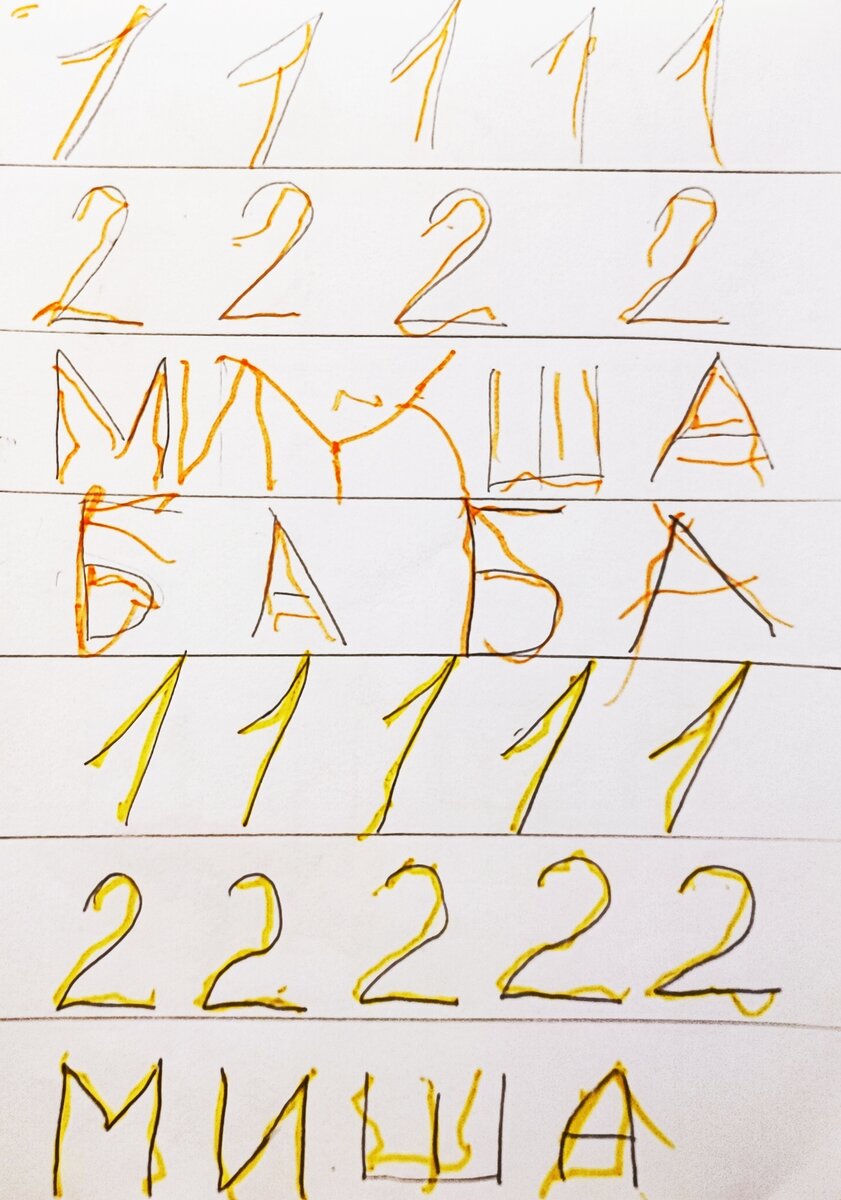 1 1 1 1 1
2 2 2 2
МИША
БАБА
1 1 1 1 1
2 2 2 2 2
МИША